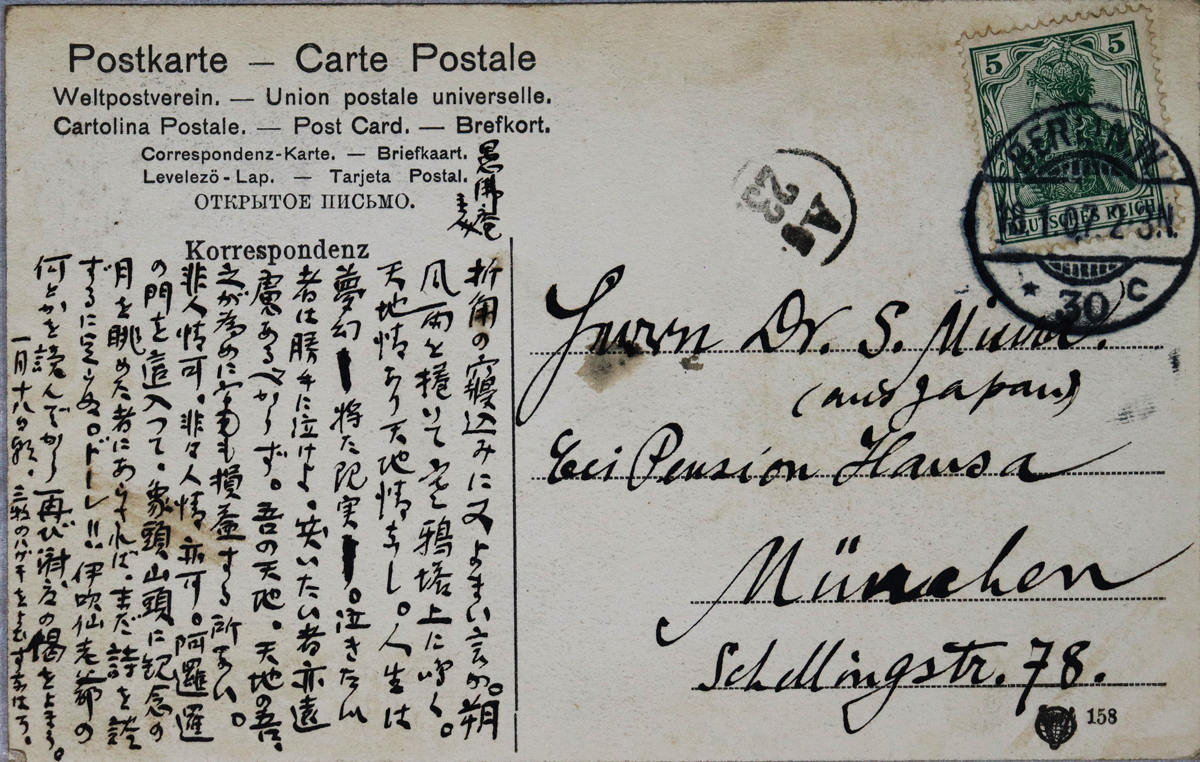 Postkarte — Carte Postale
Weltpostverein. — Union postale universelle.
Cartolina Postale. — Post Card. — Brefkort.
Correspondenz-Karte. — Briefkaart.
Levelező-Lap. — Tarjeta Postal.
ОТКРЫТОЕ ПИСЬМО.
Korrespondenz
愚佛庵
折角の寝込みに又よまい言か。朔
風雨を捲いて寒鴉塔上に鳴く。
天地情あり天地情なし。人生は
夢幻 将た現実 。泣きたい
者は勝手に泣けよ。笑いたい者亦遠
慮あるべからず。吾の天地。天地の吾。
之が為めに毫も損益する所ない。
非人情可。非々人情亦可。阿羅邏
の門を這入つて。象頭山頭に観念の
月を眺めた者にあらざれば。まだ詩を談
するに足らぬ。ドーレ!!。伊吹仙老爺の
何とかを読んでから再び濟度の偈をよまう。
一月十八日夜。
5 5
DEUTSCHES REICH
BERLIN W.
18.1.07. 2-3N.
* 30 c
Ag
23
Herrn Dr. S. Miura.
(aus Japan)
bei Pension Hansa
München
Schellingstr. 78.
158